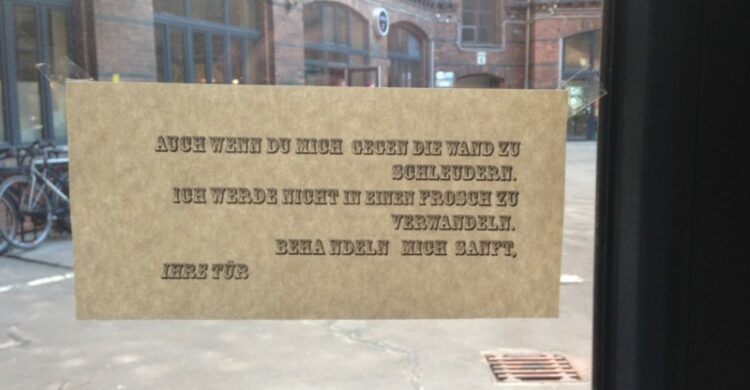 AUCH WENN DU MICH GEGEN DIE WAND ZU
SCHLEUDERN.
ICH WERDE NICHT IN EINEN FROSCH ZU
VERWANDELN.
BEHA NDELN MICH SANFT,
IHRE TÜR